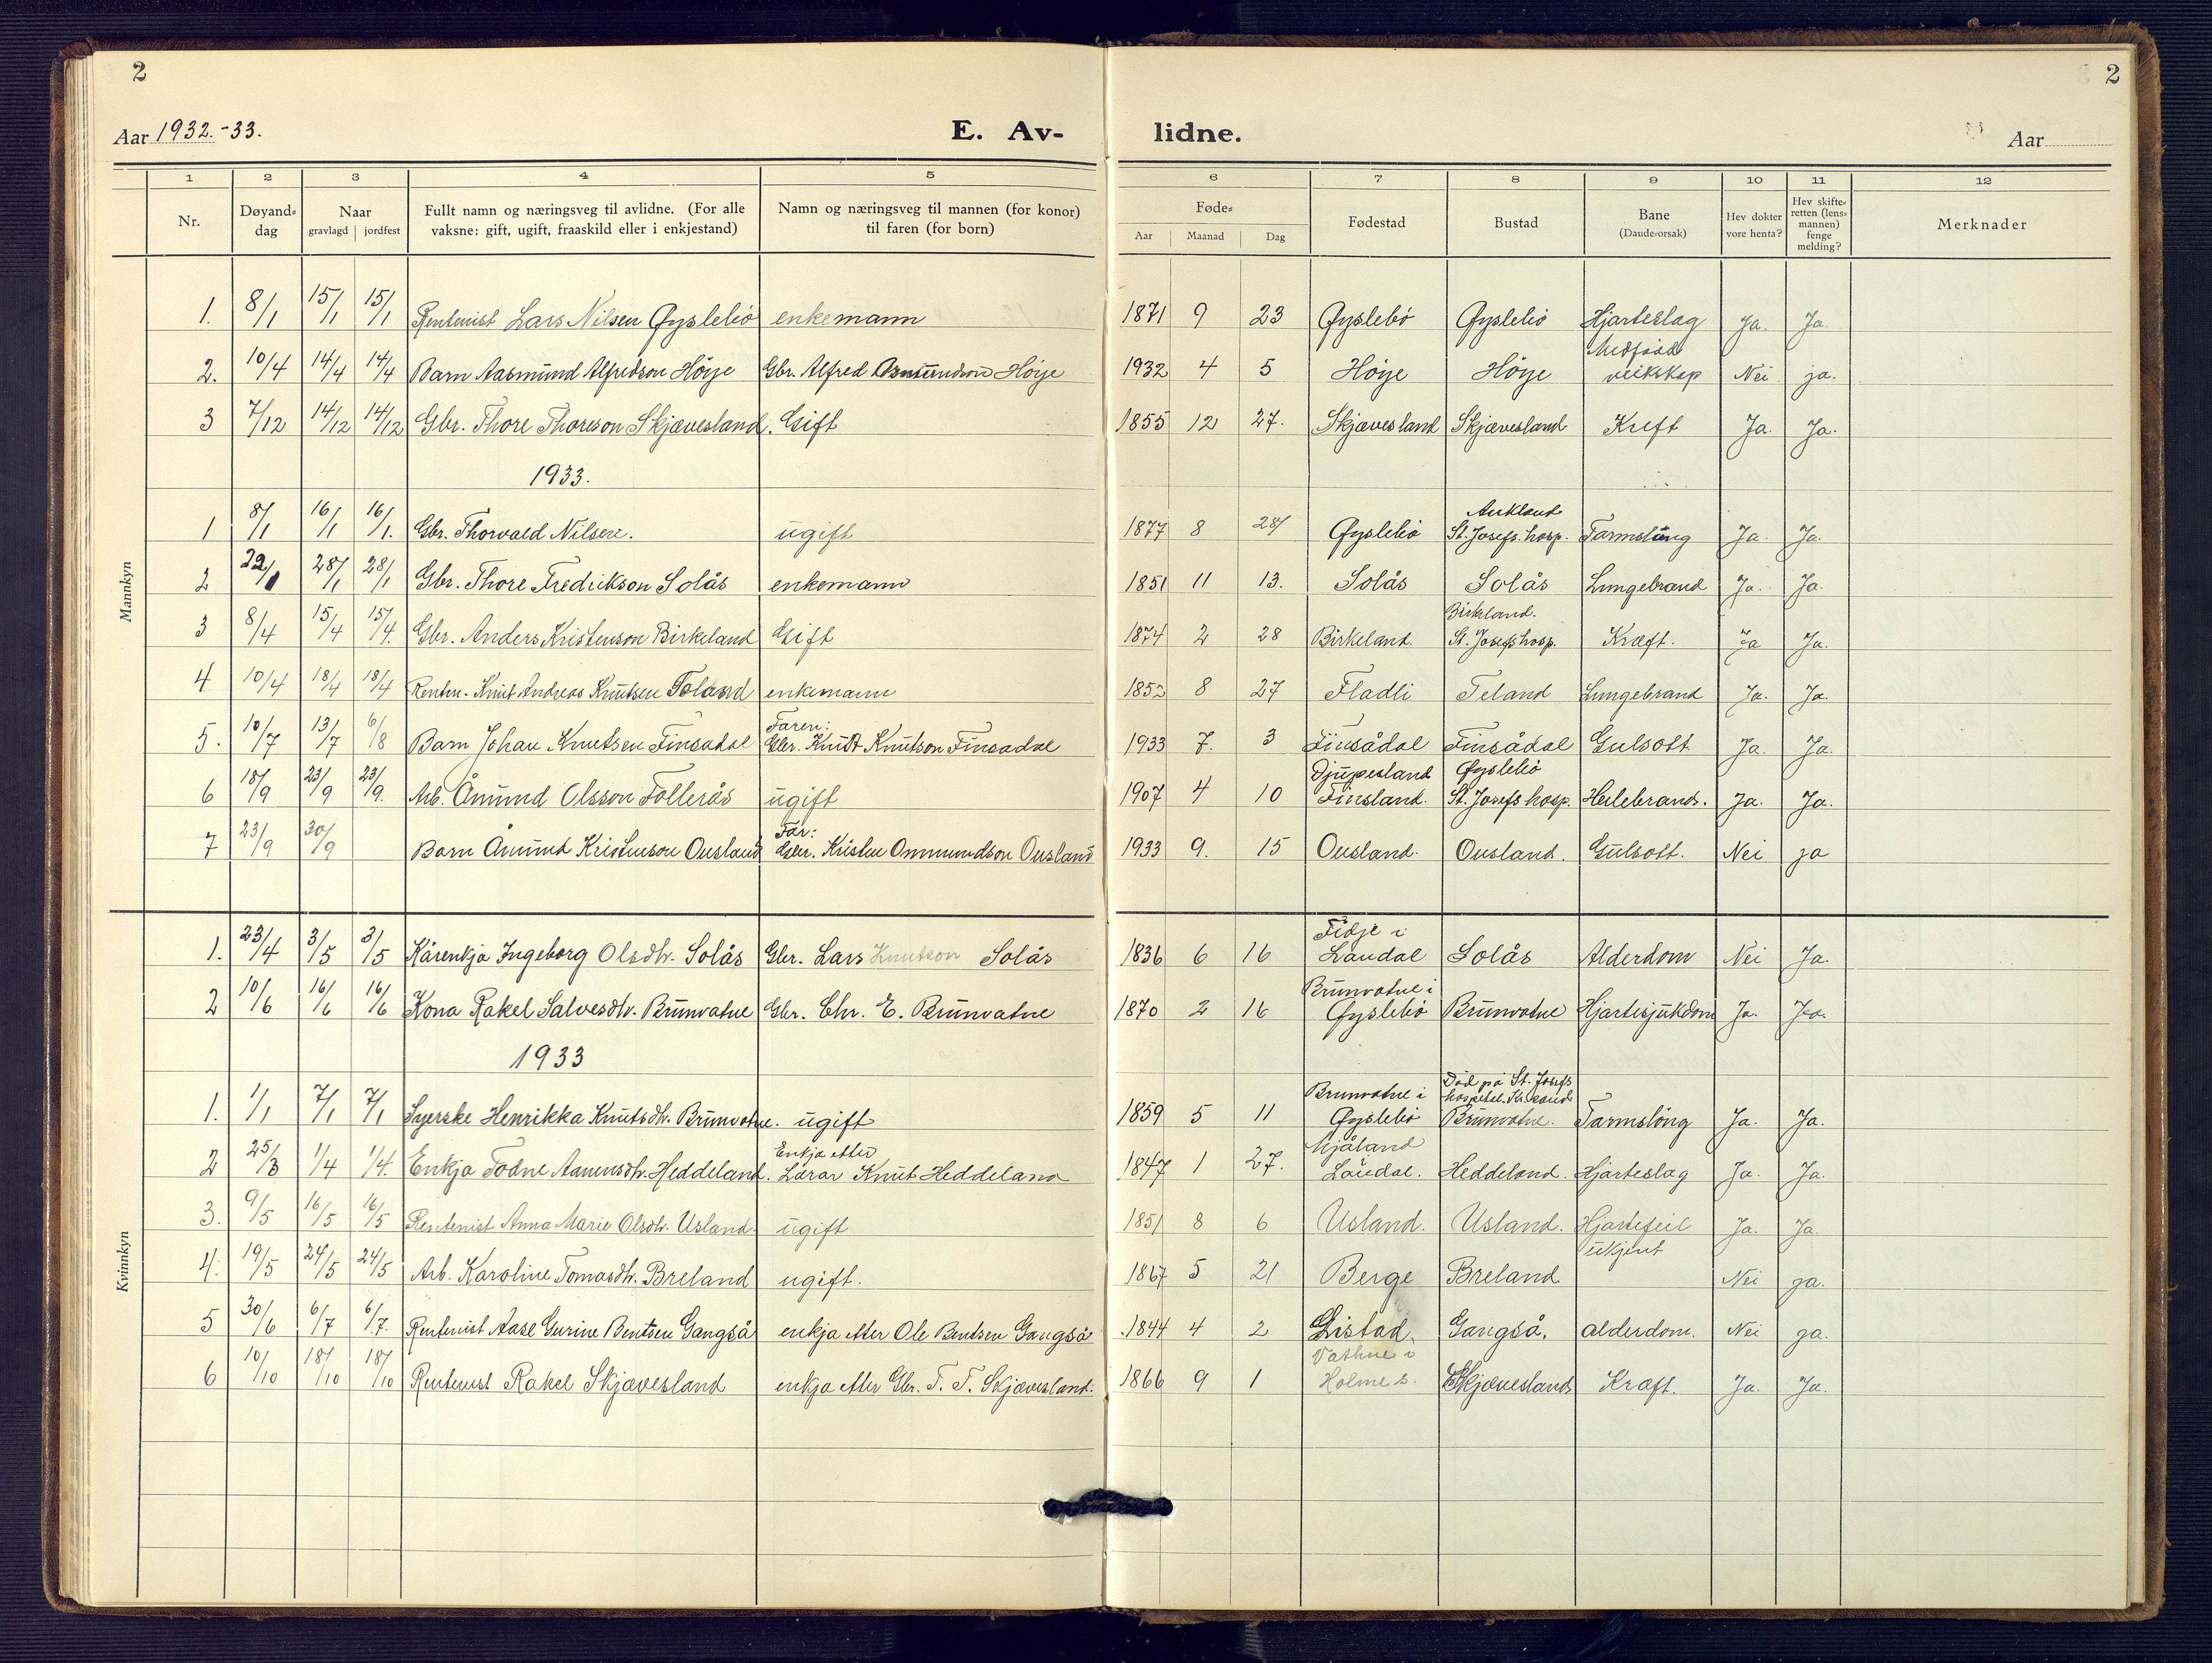 2
2
Aar 1932.-33.
E. Av-
lidne.
Aar
1 2 3 4 5 6 7 8 9 10 11 12
Nr.
Døyand-dag
Naar
gravlagd jordfest
Fullt namn og næringsveg til avlidne. (For alle
vaksne: gift, ugift, fraaskild eller i enkjestand)
Namn og næringsveg til mannen (for konor)
til faren (for born)
Føde-
Aar Maanad Dag
Fødestad
Bustad
Bane
(Daude-orsak)
Hev dokter
vore henta?
Hev skifte-
retten (lens-
mannen)
fenge
melding?
Merknader
Mannkyn
1. 8/1 15/1 15/1 Rentenist Lars Nilsen Øyslebö enkemann 1871 9 23 Øyslebö Øyslebö Hjarteslag Ja. Ja.
2. 10/4 14/4 14/4 Barn Aasmund Alfredson Höye Gbr. Alfred Asmundson Höye 1932 4 5 Höye Höye Medfödd veikskap Nei ja.
3 7/12 14/12 14/12 Gbr. Thore Thoreson Skjævesland. Gift 1855 12 27. Skjævesland Skjævesland Kreft Ja. Ja.
1933.
1 8/1 16/1 16/1. Gbr. Thorvald Nilsen. ugift 1877 8 28 Øyslebö Aukland St. Josefs hosp. Tarmslyng Ja. Ja.
2 22/1 28/1 28/1 Gbr. Thore Fredrikson Solås enkemann 1851 11 13. Solås Solås Lungebrand Ja. Ja.
3 8/4 15/4 15/4. Gbr. Anders Kristenson Birkeland Gift 1874 2 28 Birkeland. Birkeland. St. Josefs hosp. Kræft. Ja Ja.
4 10/4 18/4 18/4 Renten. Knut Andreas Knutsen Teland enkemann 1852 8 27 Fladli Teland Lungebrand Ja. Ja.
5. 10/7 13/7 6/8 Barn Johan Knutsen Finsadal Faren: Gbr. Knut Knutson Finsadal 1933 7. 3 Finsådal Finsådal Gulsott Ja. Ja.
6 18/9 23/9 23/9. Arb. Ånund Olsson Follerås ugift 1907 4 10 Djupesland Finsland. Øyslebö St. Josefs hosp. Heilebrand. Ja. Ja.
7 23/9 30/9 Barn Ånund Kristenson Ousland Far: Gbr. Kristen Ommundson Ousland 1933 9. 15 Ousland. Ousland. Gulsott. Nei ja
Kvinnkyn
1. 23/4 3/5 3/5 Kårenkja Ingeborg Olsdtr. Solås Gbr. Lars Knutson Solås 1836 6 16 Fidje i Laudal Solås Alderdom Nei Ja.
2 10/6 16/6 16/6 Kona Rakel Salvesdtr. Brunvatne Gbr. Chr. E. Brunvatne 1870 2 16 Brunvatne i Øyslebö Brunvatne Hjartesjukdom Ja. Ja.
1933
1. 1/1 7/1 7/1 Syerske Henrikka Knutsdtr. Brunvatne. ugift 1859 5 11 Brunvatne i Øyslebö Död på St. Josefs hospital. Kr.sand Brunvatne. Tarmslöng Ja. Ja.
2 25/3 1/4 1/4. Enkja Todne Aanensdtr. Heddeland. Enkja etter Lærar Knut Heddeland 1847 1 27. Mjåland Laudal. Heddeland. Hjarteslag Ja. Ja.
3. 9/5 16/5 16/5 Rentenist Anna Marie Olsdtr. Usland. ugift 1851 8 6 Usland. Usland. Hjartefeil Ja. Ja
4. 19/5 24/5 24/5 Arb. Karoline Tomasdtr. Breland ugift. 1867 5 21 Berge Breland ukjent Nei ja.
5 30/6 6/7 6/7. Rentenist Aase Gurine Bentsen Gangså enkja etter Ole Bentsen Gangså 1844 4 2 Listad. Gangså. alderdom. Nei ja.
6 10/10 18/10 18/10 Rentenist Rakel Skjævesland enkja etter Gbr. T. T. Skjævesland. 1866 9 1 Vathne i Holme s. Skjævesland Kræft. Ja. Ja.